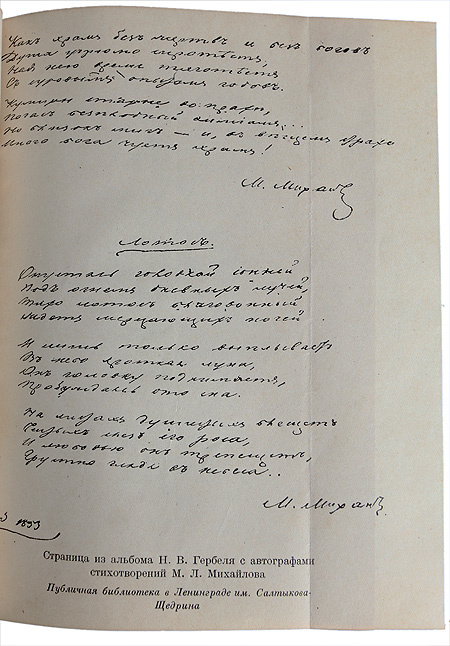 Какъ храмъ безъ жертвъ и безъ боговъ
Душа угрюмо сиротѣетъ,
Надъ нею время тяготѣетъ
Съ суровымъ опытомъ годовъ.
Кумиры старые во прахѣ,
Погасъ безплодный ѳиміамъ...
Но близокъ мигъ — и, въ вѣщемъ страхѣ
Иного бога чуетъ храмъ!
М. Михайловъ
Лотосъ.
Опустясь головкой сонной
Подъ огнемъ дневныхъ лучей,
Тихо лотосъ благовонный
Ждетъ мерцающихъ ночей.
И лишь только выплываетъ
Въ небо кроткая луна,
Онъ головку поднимаетъ,
Пробуждаясь ото сна.
На листахъ душистыхъ блещетъ
Чистыхъ слезъ его роса,
И любовью онъ трепещетъ,
Грустно глядя въ небеса..
М. Михайловъ
1853
Страница из альбома Н. В. Гербеля с автографами
стихотворений М. Л. Михайлова
Публичная библиотека в Ленинграде им. Салтыкова-
Щедрина